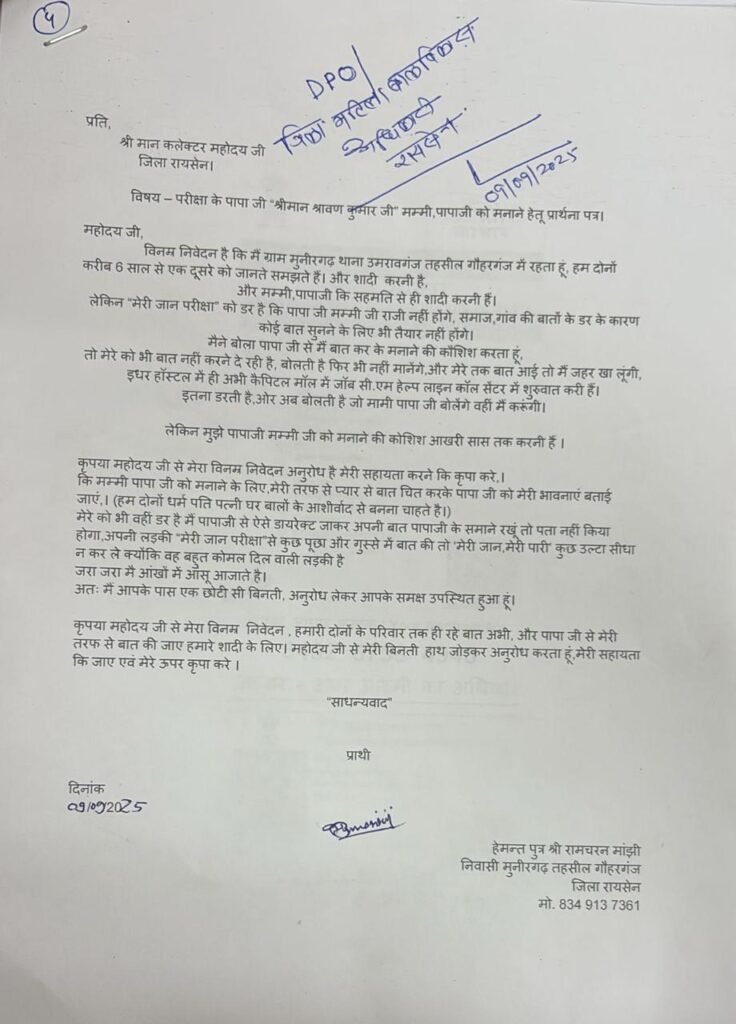 ६
DPO
जिला महिला बाल विकास
अधिकारी
रायसेन
09/09/2025
प्रति,
श्री मान कलेक्टर महोदय जी
जिला रायसेन।
विषय – परीक्षा के पापा जी "श्रीमान श्रावण कुमार जी" मम्मी,पापाजी को मनाने हेतू प्रार्थना पत्र।
महोदय जी,
विनम्र निवेदन है कि मैं ग्राम मुनीरगढ़ थाना उमरावगंज तहसील गौहरगंज में रहता हूं, हम दोनों
करीब 6 साल से एक दूसरे को जानते समझते हैं। और शादी करनी है,
और मम्मी,पापाजी कि सहमति से ही शादी करनी हैं।
लेकिन "मेरी जान परीक्षा" को डर है कि पापा जी मम्मी जी राजी नहीं होंगे, समाज,गांव की बातों के डर के कारण
कोई बात सुनने के लिए भी तैयार नहीं होंगे।
मैने बोला पापा जी से मैं बात कर के मनाने की कौशिश करता हूं,
तो मेरे को भी बात नहीं करने दे रही है, बोलती है फिर भी नहीं मानेंगे,और मेरे तक बात आई तो मैं जहर खा लूंगी,
इधर हॉस्टल में ही अभी कैपिटल मॉल में जॉब सी.एम हेल्प लाइन कॉल सेंटर में शुरुवात करी हैं।
इतना डरती है,ओर अब बोलती है जो मामी पापा जी बोलेंगे वहीं मैं करूंगी।
लेकिन मुझे पापाजी मम्मी जी को मनाने की कोशिश आखरी सास तक करनी हैं ।
कृपया महोदय जी से मेरा विनम्र निवेदन अनुरोध है मेरी सहायता करने कि कृपा करे,।
कि मम्मी पापा जी को मनाने के लिए,मेरी तरफ से प्यार से बात चित करके पापा जी को मेरी भावनाएं बताई
जाएं,। (हम दोनों धर्म पति पत्नी घर बालों के आशीर्वाद से बनना चाहते है।)
मेरे को भी वहीं डर है मैं पापाजी से ऐसे डायरेक्ट जाकर अपनी बात पापाजी के समाने रखूं तो पता नहीं किया
होगा,अपनी लड़की "मेरी जान परीक्षा"से कुछ पूछा और गुस्से में बात की तो 'मेरी जान,मेरी पारी' कुछ उल्टा सीधा
न कर ले क्योंकि वह बहुत कोमल दिल वाली लड़की है
जरा जरा मै आंखों में आंसू आजाते है।
अतः मैं आपके पास एक छोटी सी बिनती, अनुरोध लेकर आपके समक्ष उपस्थित हुआ हूं।
कृपया महोदय जी से मेरा विनम्र निवेदन , हमारी दोनों के परिवार तक ही रहे बात अभी, और पापा जी से मेरी
तरफ से बात की जाए हमारे शादी के लिए। महोदय जी से मेरी बिनती हाथ जोड़कर अनुरोध करता हूं,मेरी सहायता
कि जाए एवं मेरे ऊपर कृपा करे ।
"साधन्यवाद"
प्राथी
दिनांक
09/09/2025
हेमन्त पुत्र श्री रामचरन मांझी
निवासी मुनीरगढ़ तहसील गौहरगंज
जिला रायसेन
मो. 834 913 7361